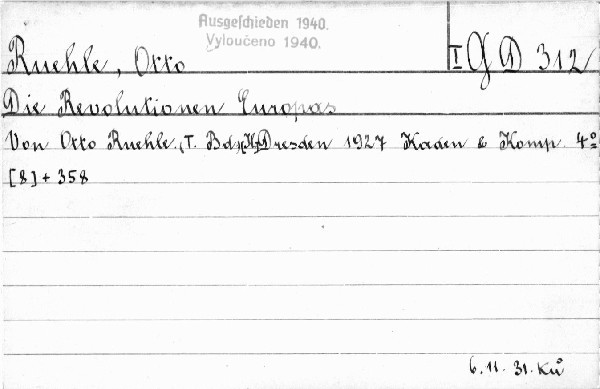 Ausgeschieden 1940.
Vyloučeno 1940.
Ruehle, Otto I G D 312
Die Revolutionen Europas
Von Otto Ruehle, Bd. Dresden 1927 Kaden & Komp. 4º
[8] + 358
6. 11. 31. Ků